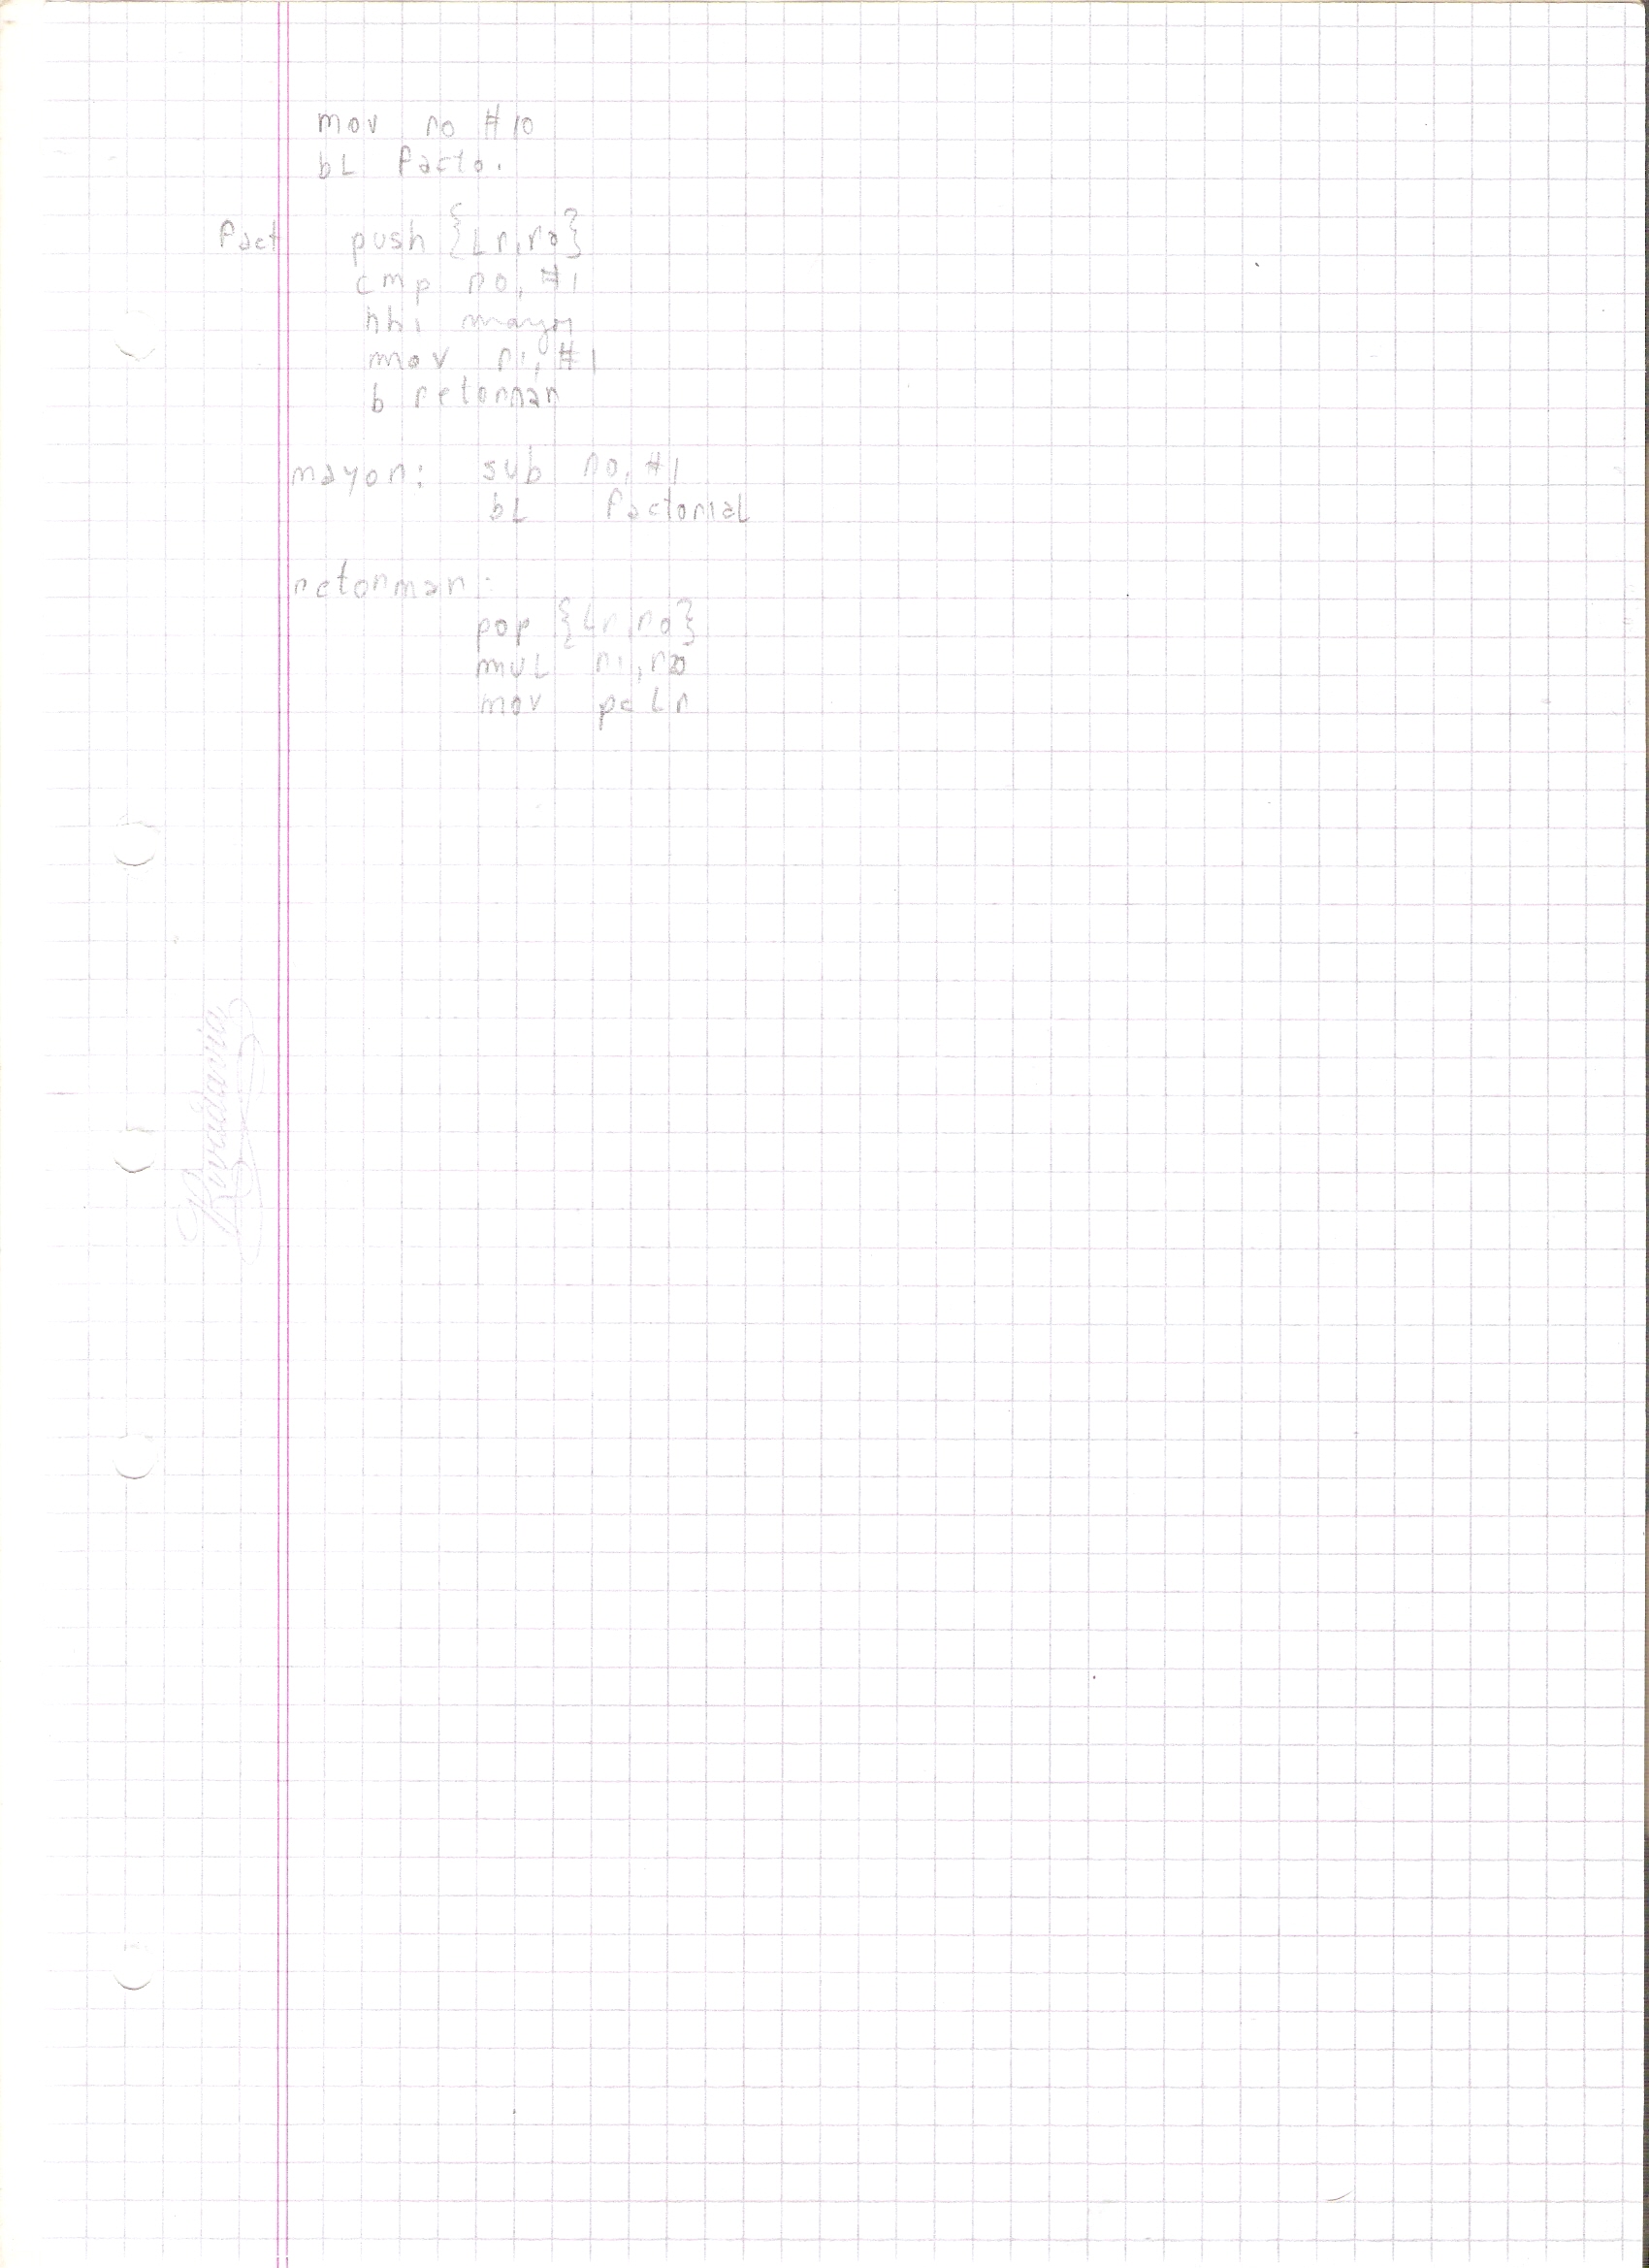 mov r0 #10
bL facto.
fact push {Lr,r0}
cmp r0, #1
bhi mayor
mov r1, #1
b retornar
mayor: sub r0, #1
bL factorial
retornar:
pop {Lr,r0}
mul r1,r0
mov pc Lr
Rivadavia